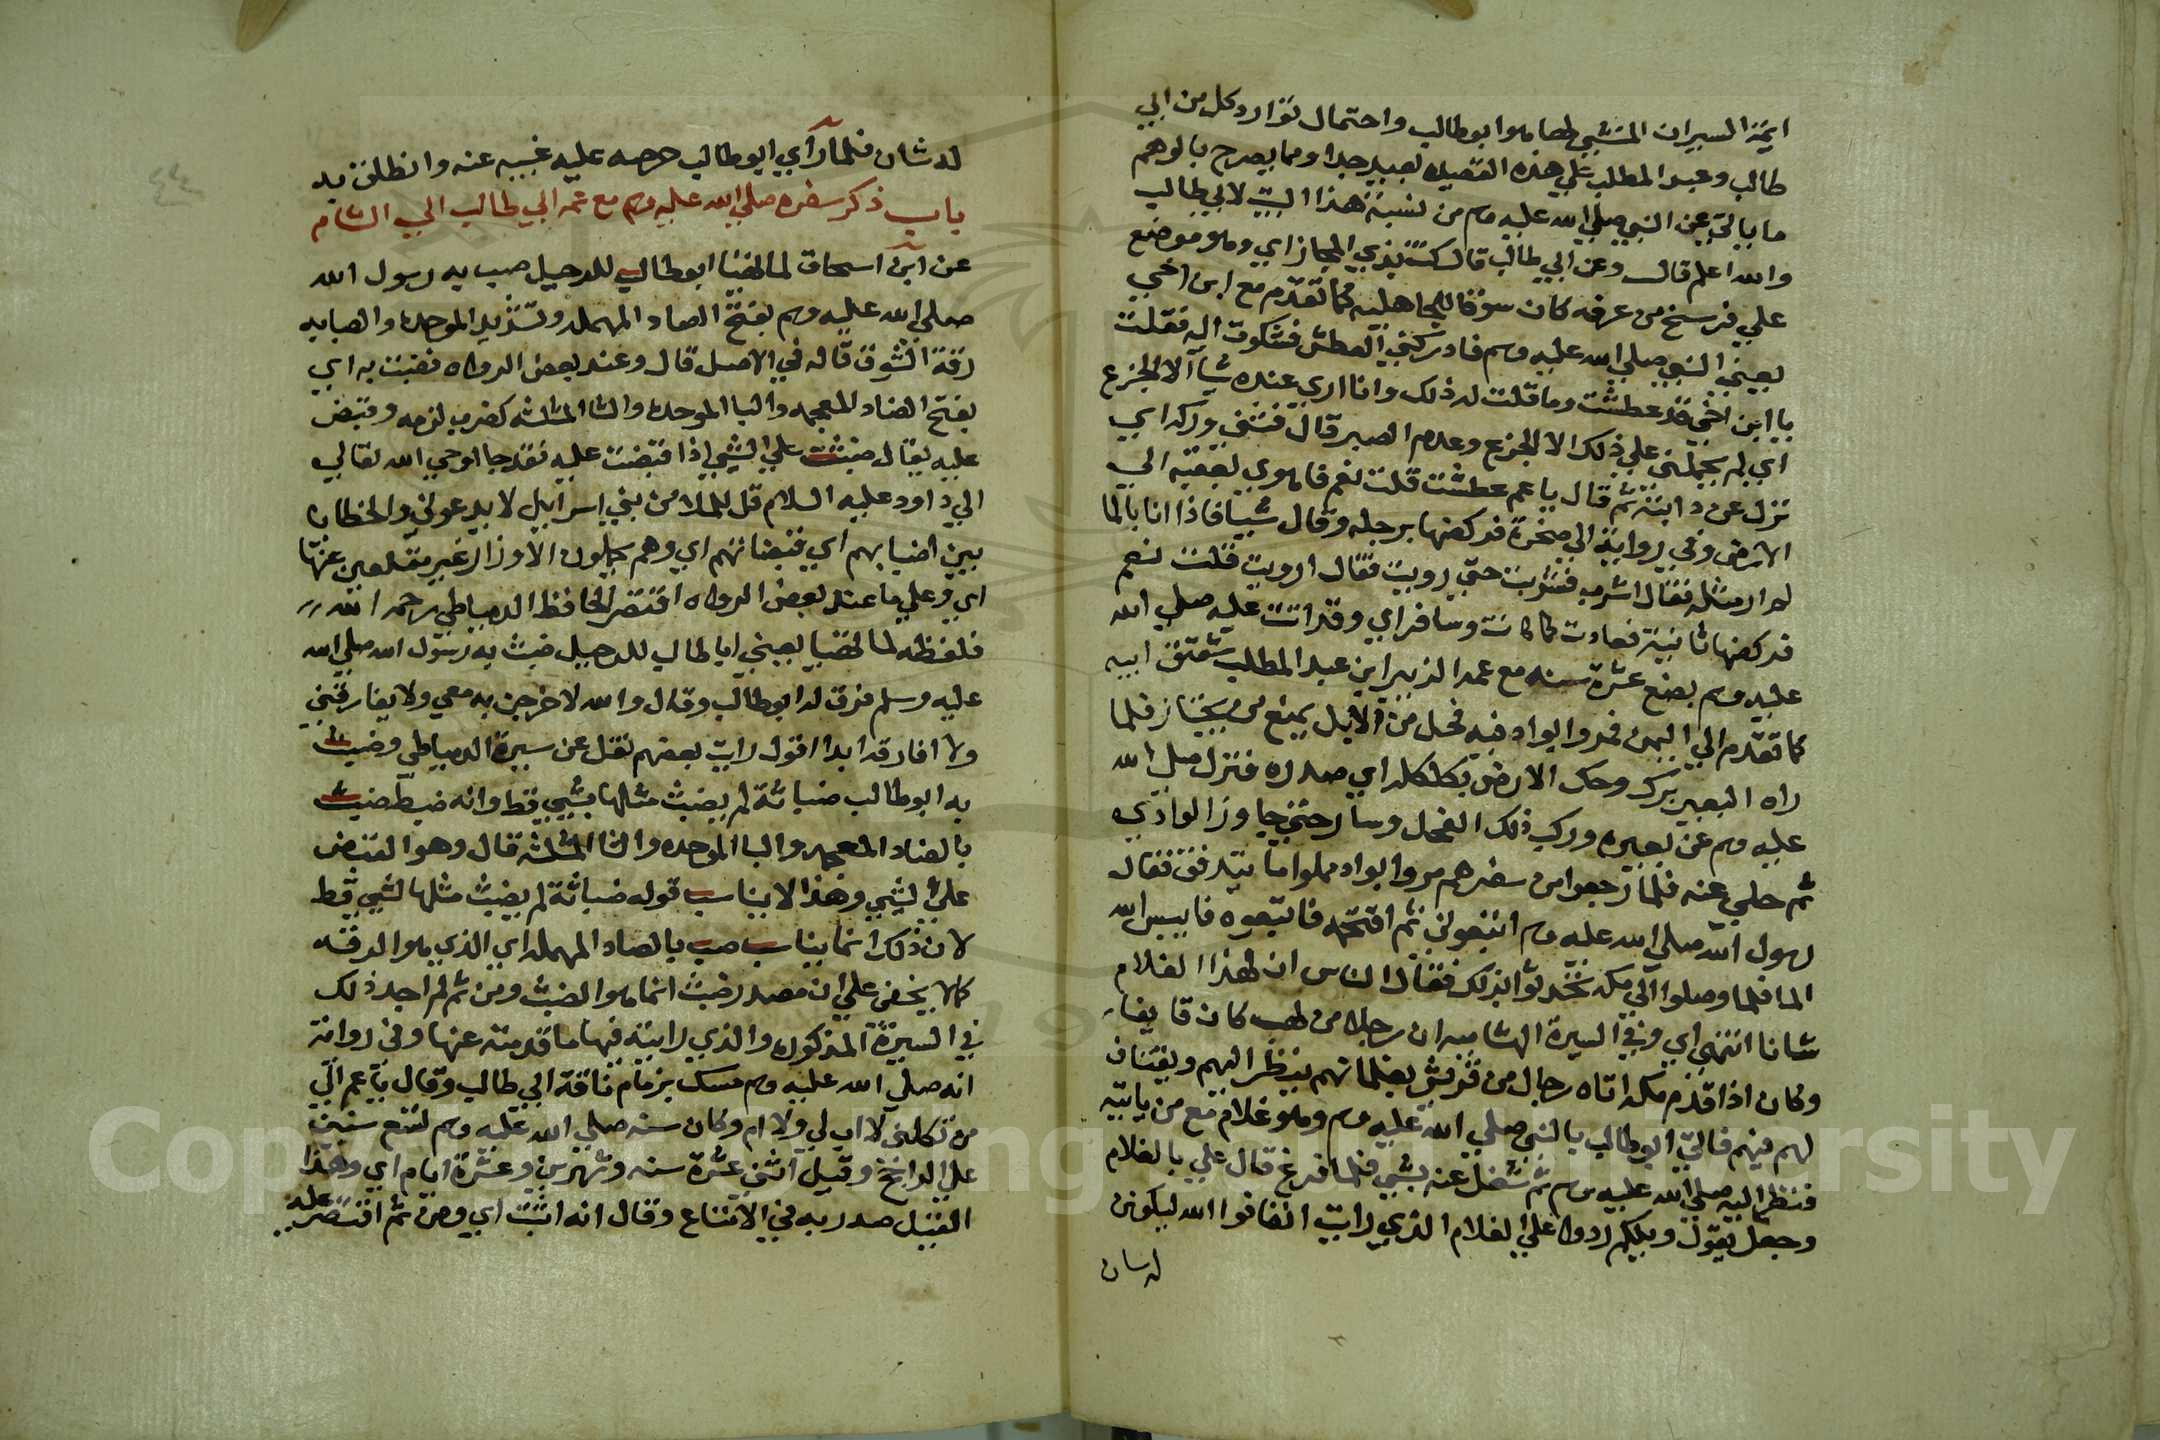 ايمة السيران المنشي لها هو ابو طالب واحتمال توارد كل من ابي
طالب وعبد المطلب علي هذه القصيده بعيد جدا ومما يصرح بالوهم
ما ياتي عن النبي صلي الله عليه وسلم من نسبة هذا البيت لابي طالب
والله اعلم قال وعن ابي طالب قال كنت بذي المجاز اي وهو موضع
علي فرسخ من عرفه كان سوقا للجاهليه كما تقدم مع ابن اخي
يعني النبي صلي الله عليه وسلم فادركني العطش فشكوت اليه فقلت
يا ابن اخي قد عطشت وما قلت له ذلك وانا اري عنده شيا الا الجزع
اي لم يحملني علي ذلك الا الجزع وعدم الصبر قال فثني وركه اي
نزل عن دابته ثم قال يا عم عطشت قلت نعم فاهوي بعقبه الي
الارض وفي رواية الي صخرة فركضها برجله وقال شيا فاذا انا بالما
لم ار مثله فقال اشرب فشربت حتي رويت فقال ارويت قلت نعم
فركضها ثانية فعادت كما كانت وسافر اي وقد اتت عليه صلي الله
عليه وسلم بضع عشرة سنه مع عمه الزبير ابن عبد المطلب شقيق ابيه
كما تقدم الي اليمن فمروا بواد فيه فحل من الابل يمنع من يجتاز فلما
راه البعير برك وحك الارض بكلكله اي صدره فنزل صلي الله
عليه وسلم عن بعيره وركب ذلك الفحل وسار حتي جاوز الوادي
ثم خلي عنه فلما رجعوا من سفرهم مروا بواد مملوا ما يتدفق فقال
رسول الله صلي الله عليه وسلم اتبعوني ثم اقتحمه فاتبعوه فايبس الله
الما فلما وصلوا الي مكه تحدثوا بذلك فقال الناس ان لهذا الغلام
شانا انتهي اي وفي السيرة الهشاميه ان رجلا من لهب كان قايفا
وكان اذا قدم مكه اتاه رجال من قريش بغلمانهم ينظر اليهم ويقتاف
لهم فيهم فاتي ابو طالب بالنبي صلي الله عليه وسلم وهو غلام مع من ياتيه
فنظر اليه صلي الله عليه وسلم ثم شغل عنه بشي فلما فرغ قال علي بالغلام
وجعل يقول ويلكم ردوا علي الغلام الذي رايت انفا فوا الله ليكونن
له شان
له شان فلما راي ابو طالب حرصه عليه غيبه عنه وانطلق به
باب ذكر سفره صلي الله عليه وسلم مع عمه ابي طالب الي الشام
عن ابن اسحاق لما تهيا ابو طالب للرحيل صب به رسول الله
صلي الله عليه وسلم بفتح الصاد المهمله وتشديد الموحده والصبابه
رقة الشوق قاله في الاصل قال وعند بعض الرواه فضبث به اي
بفتح الضاد المعجمه والبا الموحده والثا المثلثه كضرب لزمه وقبض
عليه يقال ضبثت علي الشي اذا قبضت عليه فقد جا اوحي الله تعالي
الي داود عليه السلام قل للملا من بني اسراييل لا يدعوني والخطايا
بين اضبابهم اي قبضاتهم اي وهم يحملون الاوزار غير مقلعين عنها
اي وعلي ما عند بعض الرواه اقتصر الحافظ الدمياطي رحمه الله
فلفظه لما تهيا يعني ابا طالب للرحيل ضبث به رسول الله صلي الله
عليه وسلم فرق له ابو طالب وقال والله لاخرجن به معي ولا يفارقني
ولا افارقه ابدا اقول رايت بعضهم نقل عن سيرة الدمياطي وضبث
به ابو طالب ضباثة لم يضبث مثلها بشي قط وانه ضبط ضبث
بالضاد المعجمه والبا الموحده والثا المثلثه قال وهو القبض
علي الشي وهذا لا يناسب قوله ضباثة لم يضبث مثلها لشي قط
لان ذلك انما يناسب صب بالصاد المهمله اي الذي هو الرقه
كما لا يخفي علي ان مصدر ضبث انما هو الضبث ومن ثم لم اجد ذلك
في السيرة المذكوره والذي رايته فيها ما قدمته عنها وفي رواية
انه صلي الله عليه وسلم مسك بزمام ناقة ابي طالب وقال يا عم الي
من تكلني لا اب لي ولا ام وكان سنه صلي الله عليه وسلم تسع سنين
علي الراجح وقيل اثني عشرة سنه وشهرين وعشرة ايام اي وهذا
القيل صدر به في الامتاع وقال انه اثبت اي ومن ثم اقتصر عليه